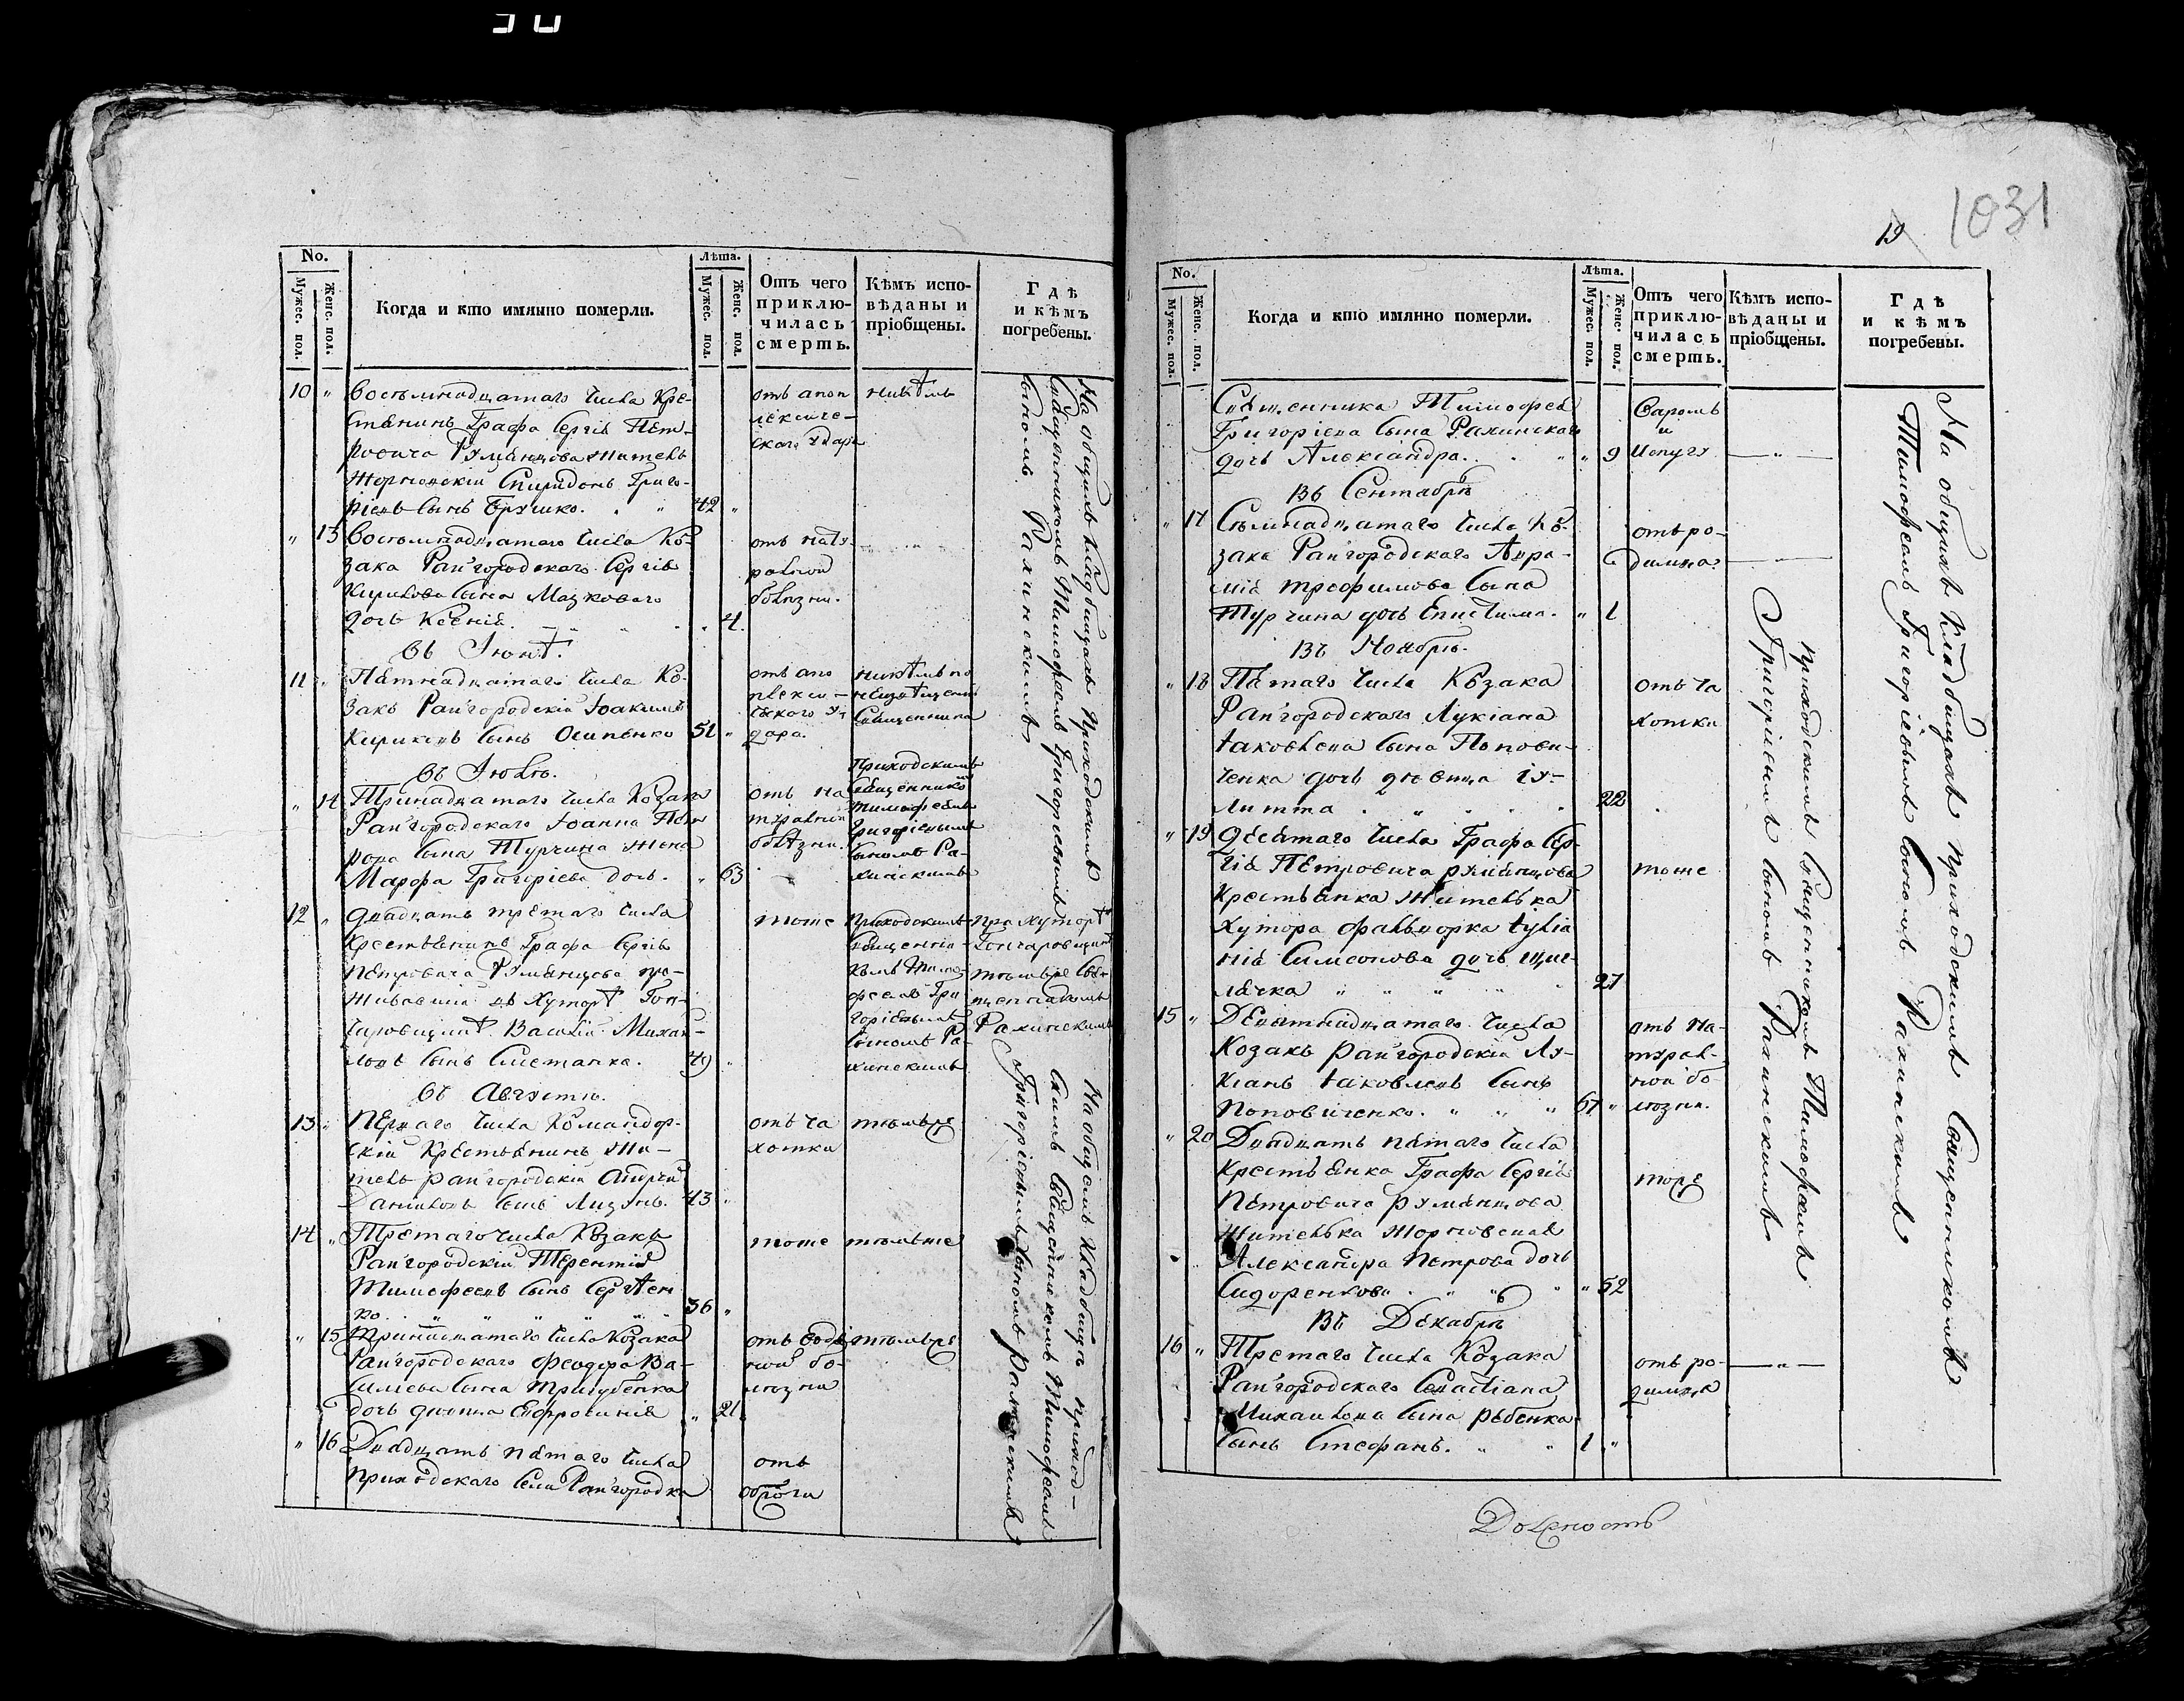 1031
19
No.
Мужес. пол.
Женс. пол.
Когда и кто имянно померли.
Лѣта.
Мужес. пол.
Женс. пол.
Отъ чего приклю-
чилась
смерть.
Кѣмъ испо-
вѣданы и
пріобщены.
Гдѣ
и кѣмъ
погребены.
10 " Восѣмнадцатаго числа Кре-
стянинъ Графа Сергія Пет-
ровича Румянцова житель
Жорновскій Спиридонъ Григо-
ріевъ сынъ 42 "
отъ апоп
лексиче-
скаго удара
никѣмъ
" 13 Восѣмнадцатаго числа Ко-
зака Райгородскаго Сергія
Кирилова сына Мазковаго
дочь Ксенія. " 4.
отъ нату
ралной
болѣзни.
Въ Іюнѣ.
11 " Пятнадцатаго числа Ко-
закъ Райгородскій Іоакимъ
Кириковъ сынъ Осипенко 51 "
отъ апо
плекси-
ческого у
дара.
никѣмъ по
священника
Въ Іюлѣ.
" 14 Тринадцатаго числа Козака
Райгородскаго Іоанна
сына Турчина жена
Марфа Григоріева дочь. " 63
отъ на
туралной
болѣзни.
Приходскимъ
священнико
Тимофѣемъ
Григоріевымъ
сыномъ Ра-
хинскимъ
12 " Двадцать третаго числа
Крестянинъ Графа Сергія
Петровича Румянцова про-
живавшій въ Хуторѣ Гон-
чаровщинѣ Василій Михай-
ловъ сынъ Сметанка. 49 "
тоже
Приходскимъ
священни-
комъ Тимо-
феемъ Гри
горіевымъ
сыномъ Ра-
хинскимъ
при хуторѣ
Гончаровщинѣ
темъже свя-
щенникомъ
Рахинскимъ
Въ Августѣ.
13 " Перваго числа Командор-
скій Крестянинъ жи-
тель Райгородскій Андрей
Даниловъ сынъ Лизунъ. 43 "
отъ ча
хотки
темъже
14 " Третаго числа Козакъ
Райгородскій Терентій
Тимофеевъ сынъ Сергѣен
ко. " " " 36 "
тоже темъже
" 15 Тринадцатаго числа Козака
Райгородскаго Феодора Ва-
силиева сына Тригубенка
дочь девица Ефросинія " 21
отъ водя
ной бо-
лѣзни
темъже
" 16 Двадцать пятаго числа
приходскаго Села Райгородка
отъ
На общихъ кладбищахъ Приходскимъ
Священникомъ Тимофеемъ Григоріевымъ
сыномъ Рахинскимъ
На общемъ кладбищѣ приход-
скимъ Священникомъ Тимофеемъ
Григоріевымъ сыномъ Рахинскимъ
No.
Мужес. пол.
Женс. пол.
Когда и кто имянно померли.
Лѣта.
Мужес. пол.
Женс. пол.
Отъ чего
приклю-
чилась
смерть.
Кѣмъ испо-
вѣданы и
пріобщены.
Гдѣ
и кѣмъ
погребены.
Священника Тимофея
Григоріева сына Рахинскаго
дочь Александра. " " 9
и
Испугу
— " —
Въ Сентабрѣ
" 17 Семнадцатаго числа Ко-
зака Райгородскаго Авра-
мія Трофимова сына
Турчина дочь Епистима. " 1
отъ ро-
димца.
Въ Ноябрѣ.
" 18 Пятаго числа Козака
Райгородскаго Лукіана
Іаковлева сына Попови-
ченка дочь девица Іу-
литта . " . 22
отъ ча
хотки
" 19 Десятаго числа Графа Сер-
гія Петровича Румянцова
крестьянка жителька
Хутора фальворка Іулїа
нія Симеонова дочь
" " " 27
тоже
15 " Девятнадцатаго числа
Козакъ Райгородскій Лу-
кіанъ Іаковлевъ сынъ
Поповиченко. " " " 67 "
отъ на-
турал-
ной бо-
лѣзни.
" 20 Двадцать пятаго числа
Крестянка Графа Сергія
Петровича Румянцова
жителька Жорновская
Александра Петрова дочь
Сидоренкова . " " " 52
тоже
Въ Декабрѣ
16 " Третаго числа Козака
Райгородскаго Севастіана
Михайлова сына Рыбенка
сынъ Стефанъ. " " 1 "
отъ ро-
димца
— " —
приходскимъ Священникомъ Тимофеемъ
Григоріевымъ сыномъ Рахинскимъ
На общихъ кладбищахъ приходскимъ Священникомъ
Тимофеемъ Григоріевымъ сыномъ Рахинскимъ